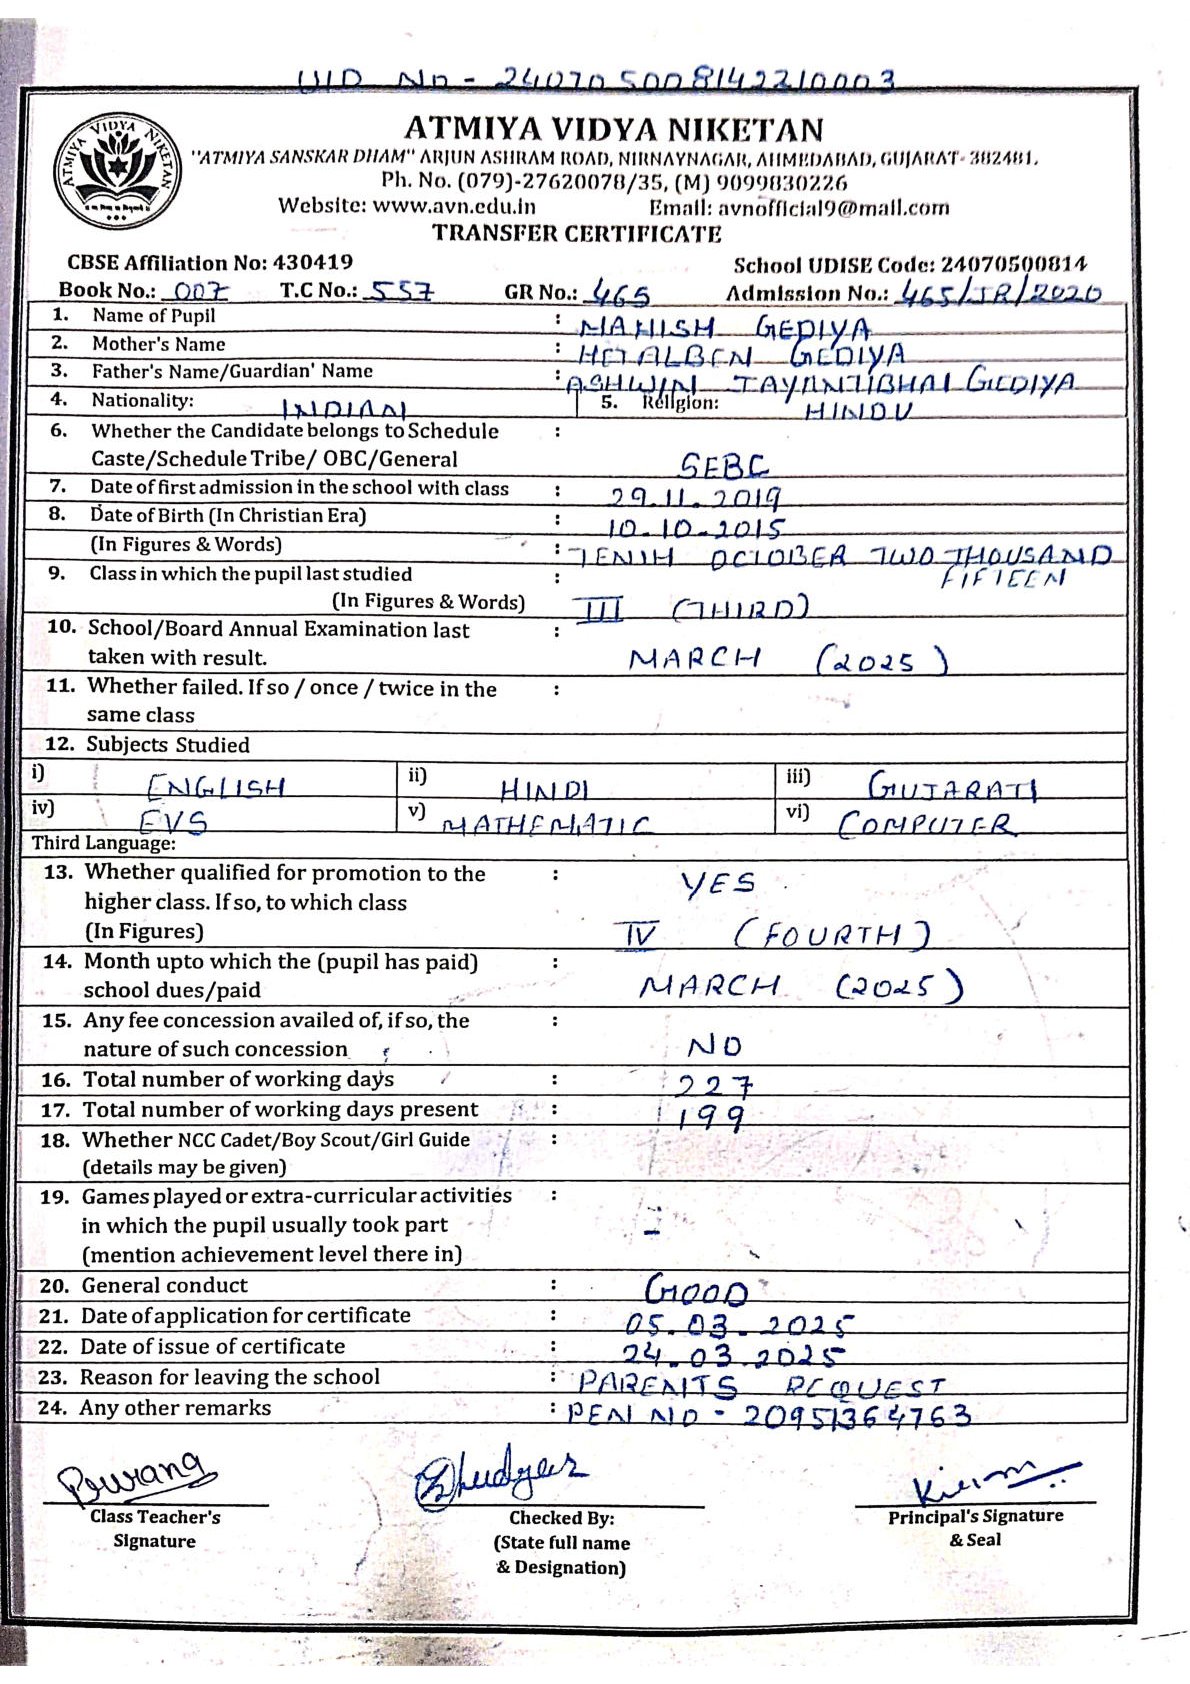 UID No - 240705008142210003
ATMIYA VIDYA NIKETAN
ATMIYA VIDYA NIKETAN
"ATMIYA SANSKAR DHAM" ARJUN ASHRAM ROAD, NIRNAYNAGAR, AHMEDABAD, GUJARAT- 382481.
Ph. No. (079)-27620078/35, (M) 9099830226
Website: www.avn.edu.in Email: avnofficial9@mail.com
TRANSFER CERTIFICATE
CBSE Affiliation No: 430419 School UDISE Code: 24070500814
Book No.: 007 T.C No.: 557 GR No.: 465 Admission No.: 465/JR/2020
1. Name of Pupil : MAHISH GEDIYA
2. Mother's Name : HETALBEN GEDIYA
3. Father's Name/Guardian' Name : ASHWIN JAYANTIBHAI GEDIYA
4. Nationality: INDIAN 5. Religion: HINDU
6. Whether the Candidate belongs to Schedule :
Caste/Schedule Tribe/ OBC/General SEBC
7. Date of first admission in the school with class : 29.11.2019
8. Date of Birth (In Christian Era) : 10.10.2015
(In Figures & Words) : TENTH OCTOBER TWO THOUSAND
FIFTEEN
9. Class in which the pupil last studied :
(In Figures & Words) III (THIRD)
10. School/Board Annual Examination last :
taken with result. MARCH (2025)
11. Whether failed. If so / once / twice in the :
same class
12. Subjects Studied
i) ENGLISH ii) HINDI iii) GUJARATI
iv) EVS v) MATHEMATIC vi) COMPUTER
Third Language:
13. Whether qualified for promotion to the : YES
higher class. If so, to which class
(In Figures) IV (FOURTH)
14. Month upto which the (pupil has paid) :
school dues/paid MARCH (2025)
15. Any fee concession availed of, if so, the :
nature of such concession NO
16. Total number of working days : 227
17. Total number of working days present : 199
18. Whether NCC Cadet/Boy Scout/Girl Guide :
(details may be given)
19. Games played or extra-curricular activities :
in which the pupil usually took part
(mention achievement level there in)
20. General conduct : GOOD
21. Date of application for certificate : 05.03.2025
22. Date of issue of certificate : 24.03.2025
23. Reason for leaving the school : PARENTS REQUEST
24. Any other remarks : PEN NO - 20951364763
Class Teacher's Checked By: Principal's Signature
Signature (State full name & Seal
& Designation)